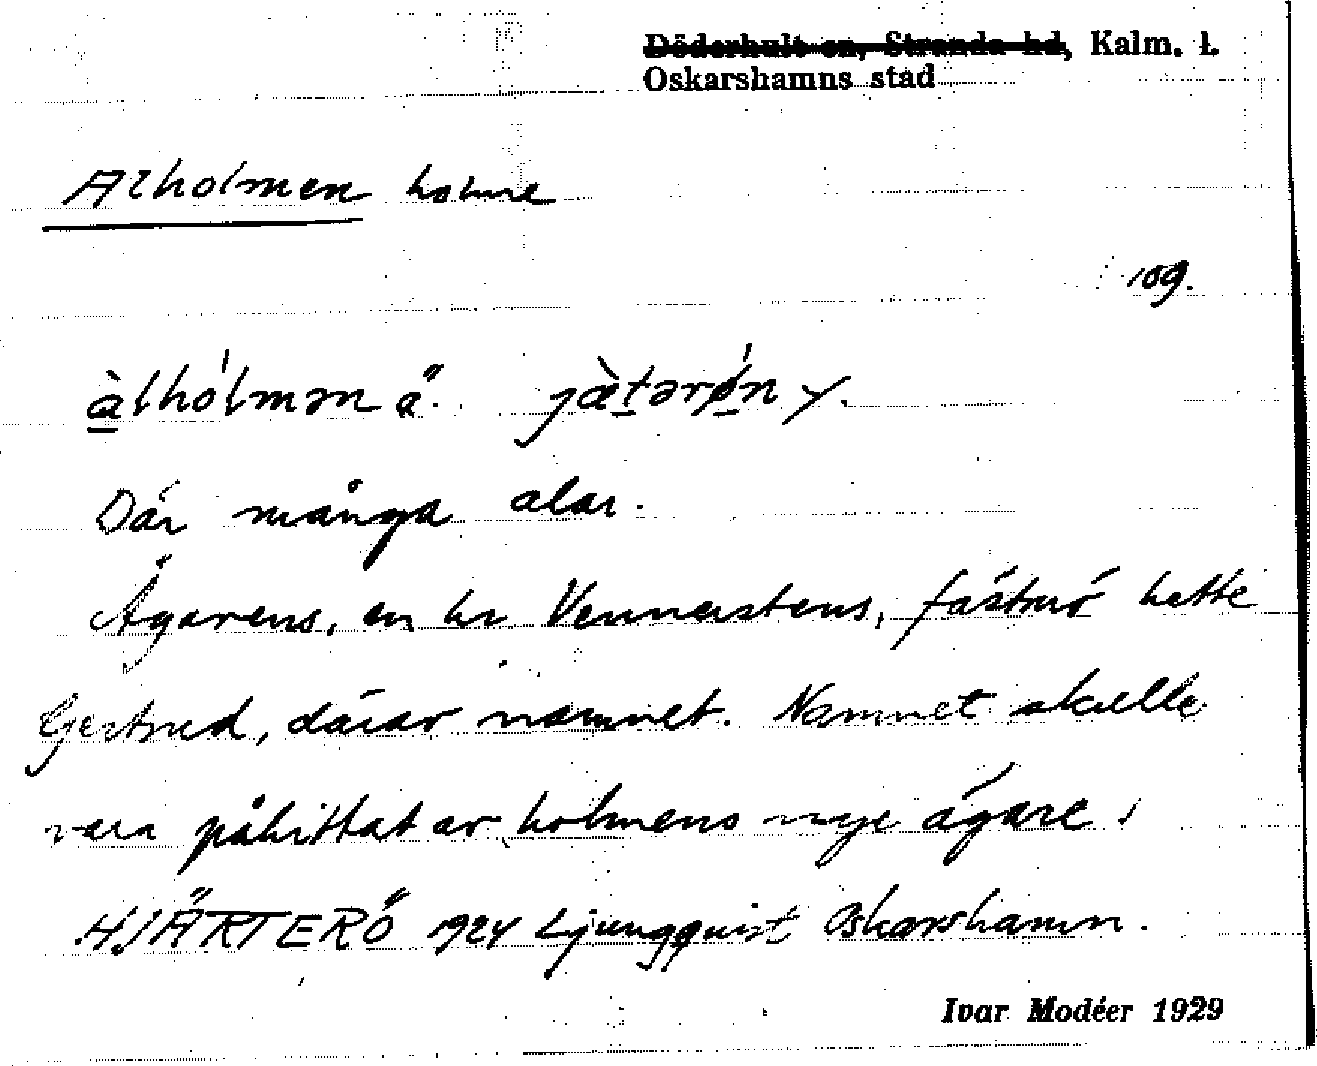 Döderhult sn, Stranda hd, Kalm. l.
Oskarshamns stad
Alholmen holme
109.
àlhólmən ä. jæ̀tərǿn y.
Där många alar.
Ägarens, en hr Vennerstens, fästmö hette
Gertrud, därav namnet. Namnet skulle
vara påhittat av holmens nye ägare.
HJÄRTERÖ 1924 Ljungquist Oskarshamn.
Ivar Modéer 1929